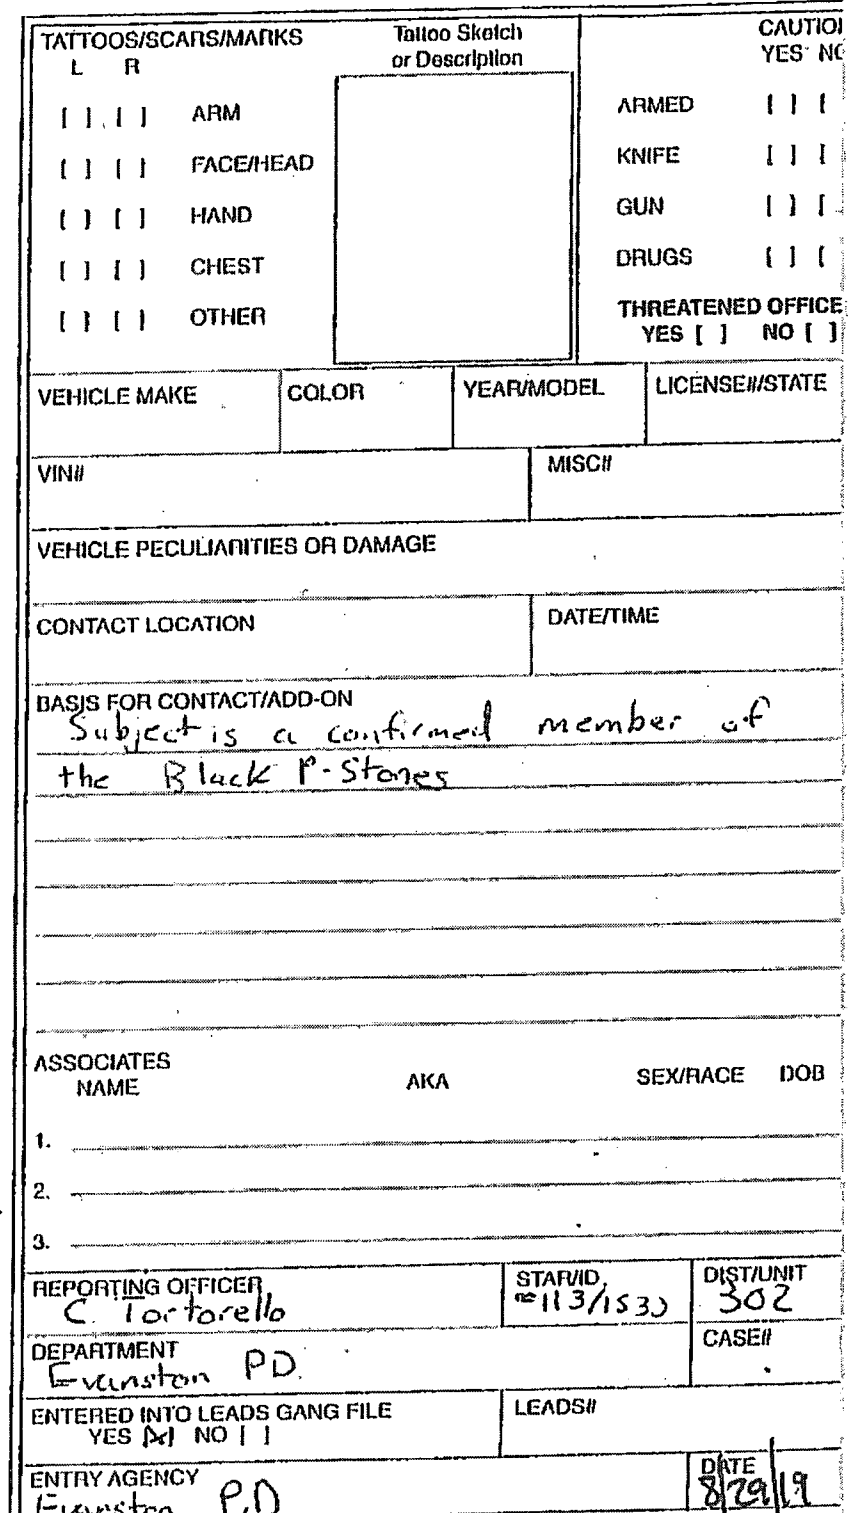 TATTOOS/SCARS/MARKS
L R
[ ] [ ] ARM
[ ] [ ] FACE/HEAD
[ ] [ ] HAND
[ ] [ ] CHEST
[ ] [ ] OTHER
Tattoo Sketch
or Description
CAUTIO
YES NO
ARMED [ ] [
KNIFE [ ] [
GUN [ ] [
DRUGS [ ] [
THREATENED OFFICE
YES [ ] NO [ ]
VEHICLE MAKE COLOR YEAR/MODEL LICENSE#/STATE
VIN# MISC#
VEHICLE PECULIARITIES OR DAMAGE
CONTACT LOCATION DATE/TIME
BASIS FOR CONTACT/ADD-ON
Subject is a confirmed member of
the Black P-Stones
ASSOCIATES
NAME AKA SEX/RACE DOB
1.
2.
3.
REPORTING OFFICER STAR/ID DIST/UNIT
C. Tortorello 302
DEPARTMENT CASE#
Evanston PD.
ENTERED INTO LEADS GANG FILE LEADS#
YES [X] NO [ ]
ENTRY AGENCY DATE
Evanston P.D 8/29/19